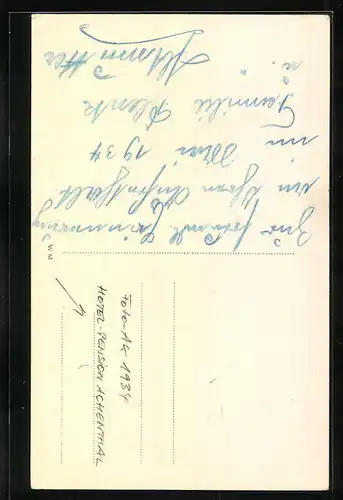 Zur freundl. Erinnerung
an Ihren Aufenthalt
im Mai 1934
Familie
u.
W M
Foto-AK 1934
HOTEL-PENSION ACHENTHAL